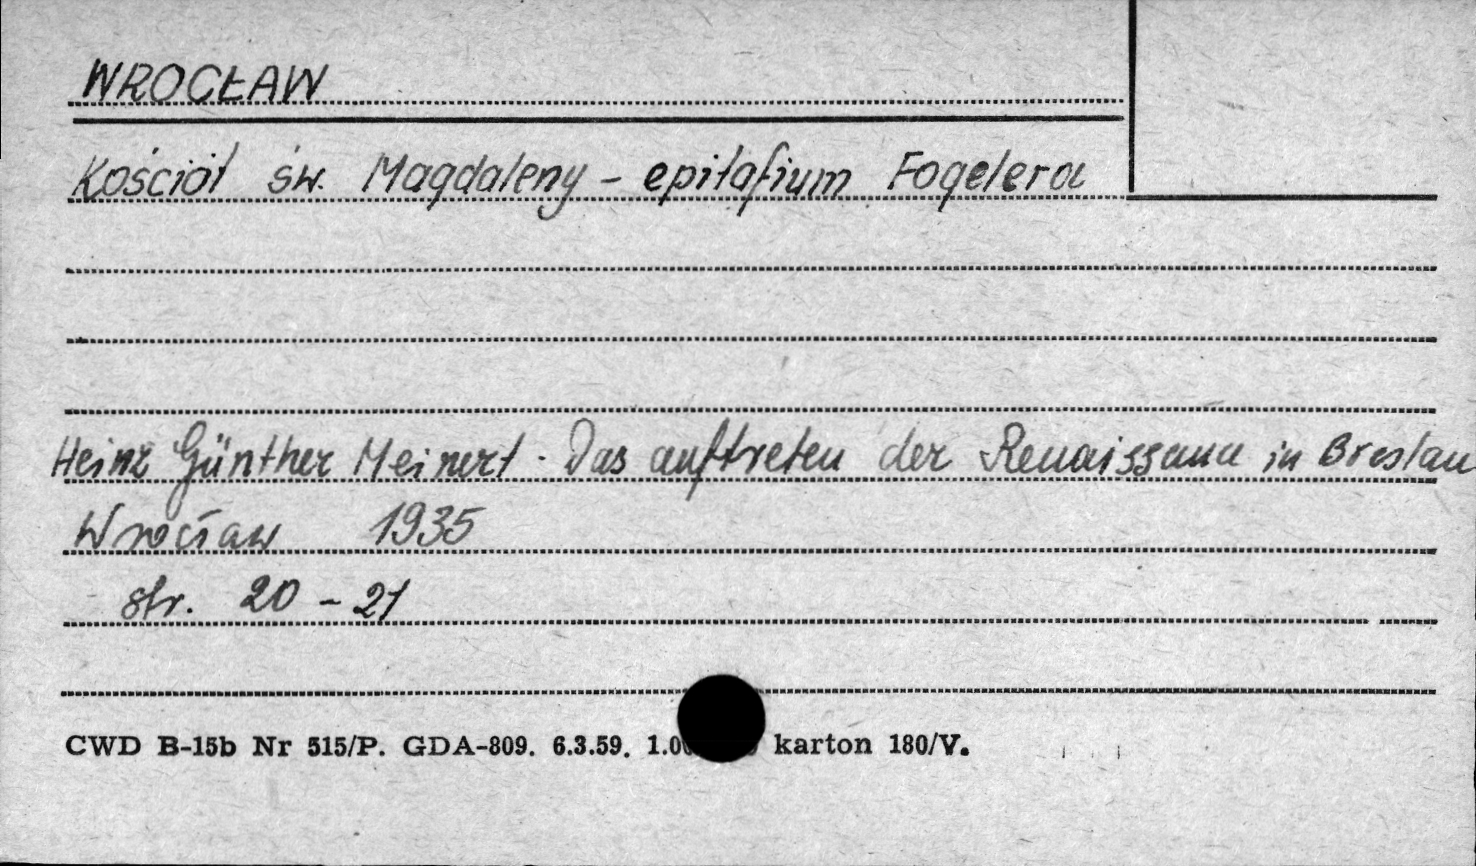 WROCŁAW
Kościół św. Magdaleny - epitafium Fogelera
Heinz Günther Meinert. Das auftreten der Renaissance in Breslau
Wrocław 1935
str. 20-21
CWD B-15b Nr 515/P. GDA-809. 6.3.59. karton 180/V.